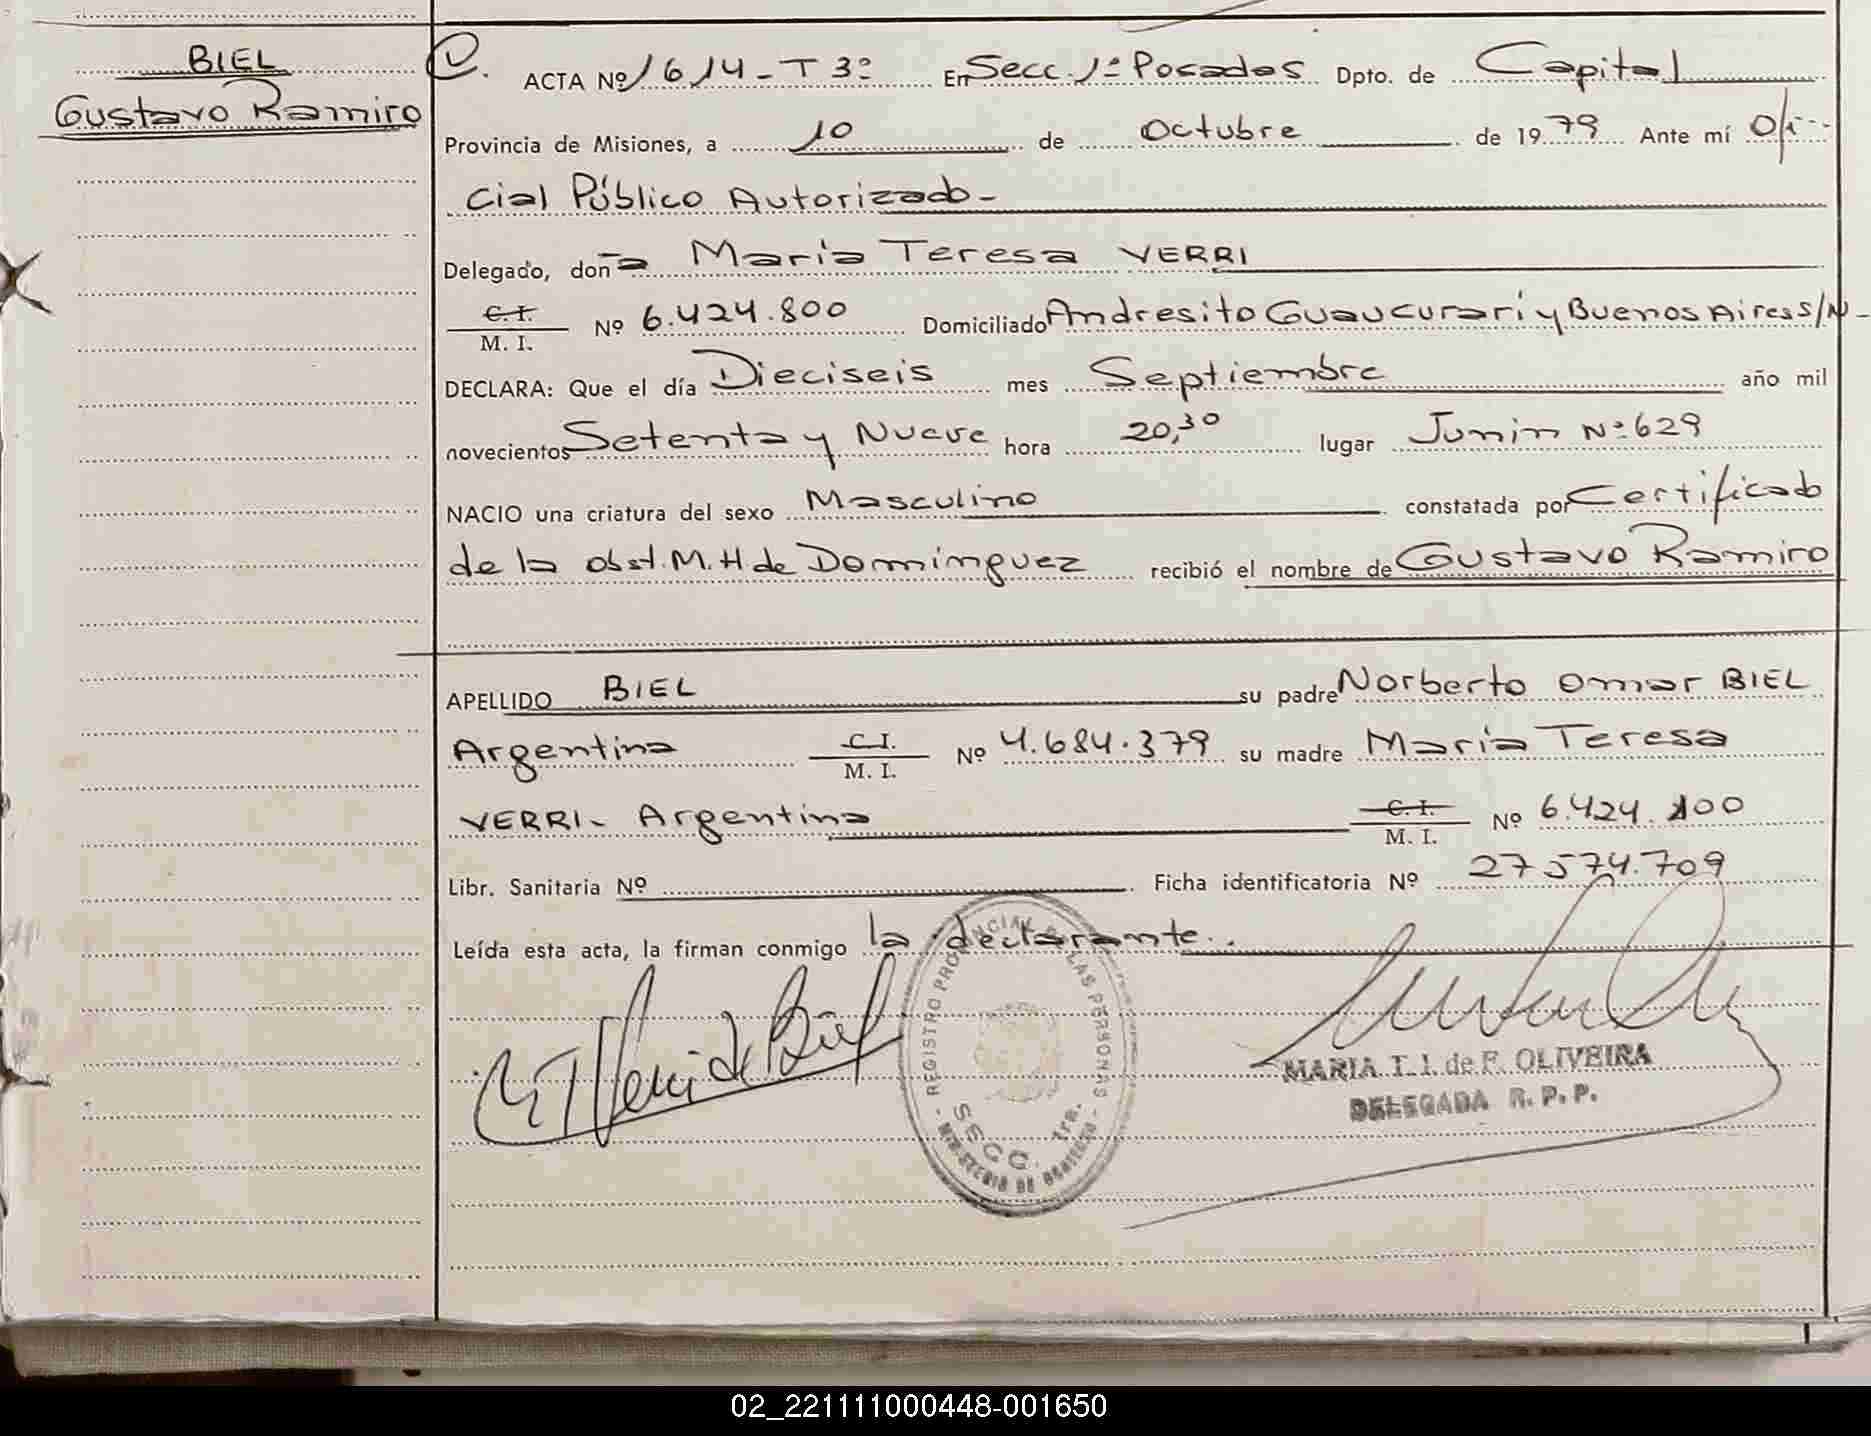 BIEL
Gustavo Ramiro
ACTA Nº 1614-T3º En Secc. 1ª Posadas Dpto. de Capital
Provincia de Misiones, a 10 de Octubre de 1979 Ante mí Ofi-
cial Público Autorizado-
Delegado, doña María Teresa VERRI
C.I.
M. I. Nº 6.424.800 Domiciliado Andresito Guaucurarí y Buenos Aires S/N-
DECLARA: Que el día Dieciseis mes Septiembre año mil
novecientos Setenta y Nueve hora 20,30 lugar Junin Nº 629
NACIO una criatura del sexo Masculino constatada por Certificado
de la obst. M.H de Domínguez recibió el nombre de Gustavo Ramiro
APELLIDO BIEL su padre Norberto Omar BIEL
Argentina C.I. M. I. Nº 4.684.379 su madre María Teresa
VERRI- Argentina C.I. M. I. Nº 6.424.800
Libr. Sanitaria Nº Ficha identificatoria Nº 27574.709
Leída esta acta, la firman conmigo la declarante.
REGISTRO PROVINCIAL DE LAS PERSONAS
SECC. 1ra.
MINISTERIO DE GOBIERNO
MARIA T. I. de F. OLIVEIRA
DELEGADA R. P. P.
02_221111000448-001650